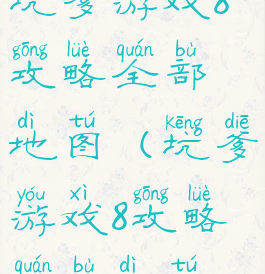 坑爹游戏8
gōng lüè quán bù
攻略全部
dì tú kēng diē
地图（坑爹
yóu xì gōng lüè
游戏8攻略
quán bù dì tú